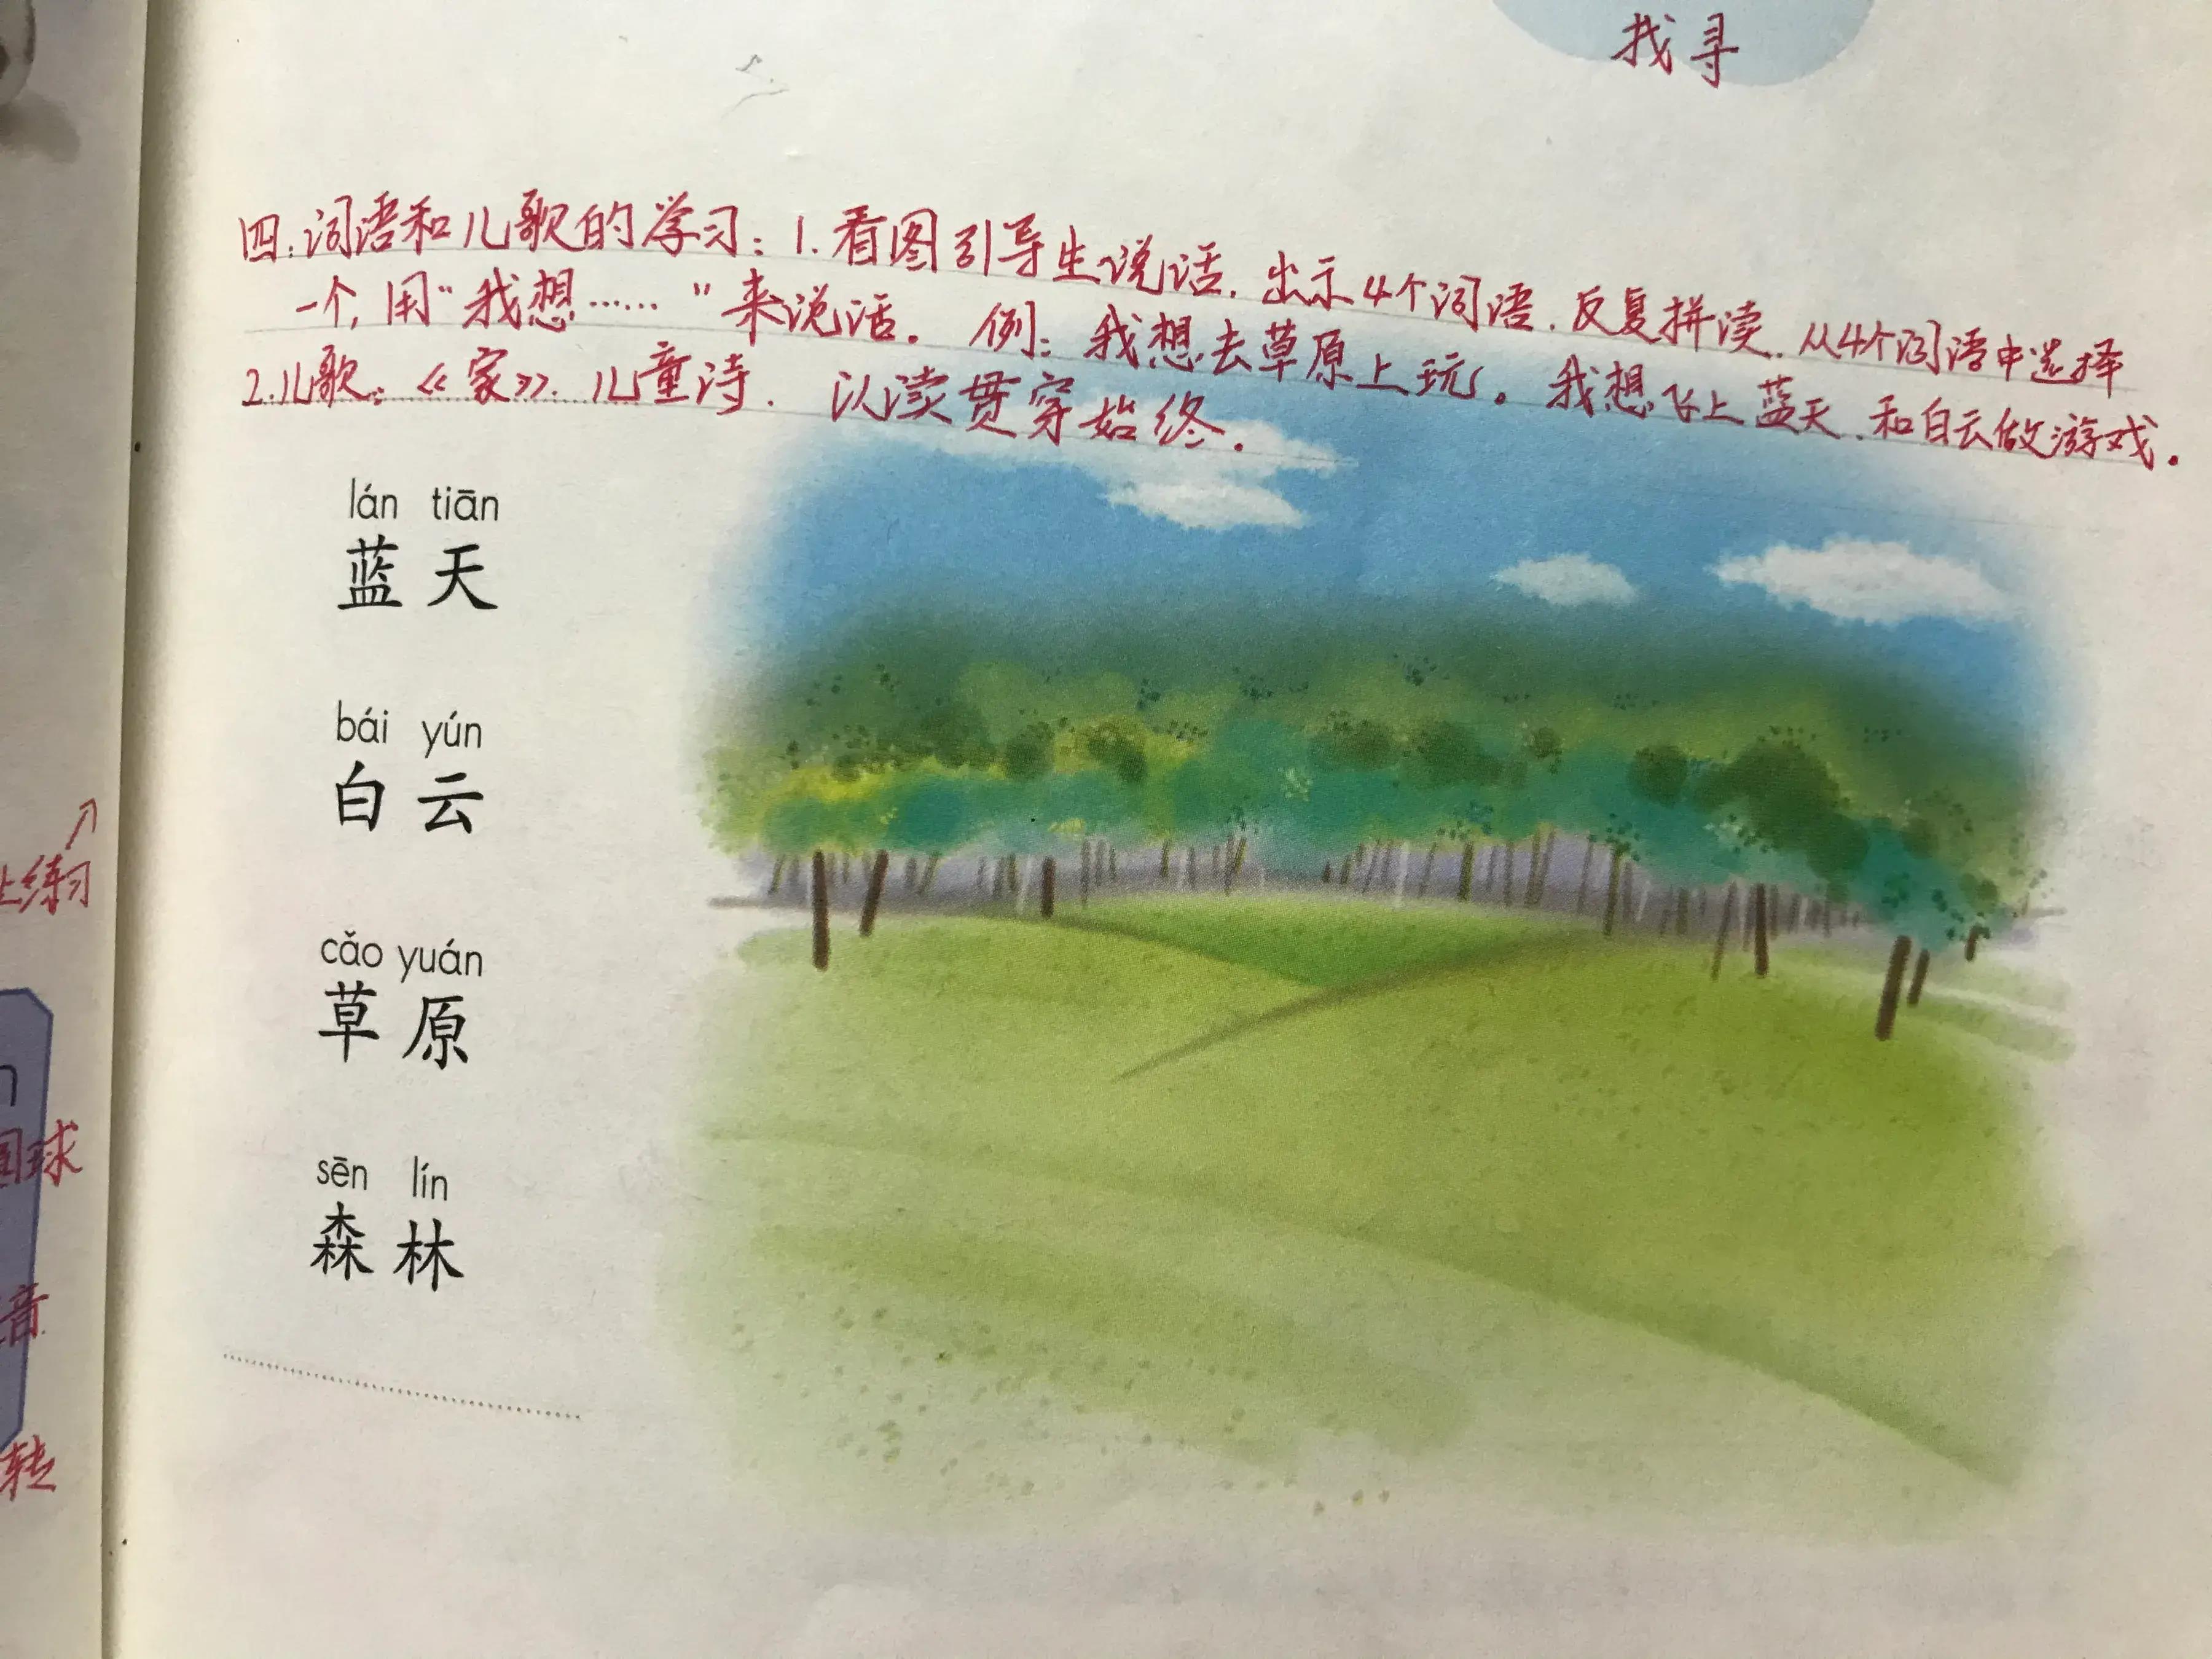 找寻
四:词语和儿歌的学习:1.看图引导生说话.出示4个词语.反复拼读.从4个词语中选择
一个,用“我想……”来说话。例:我想去草原上玩。我想飞上蓝天.和白云做游戏.
2.儿歌:《家》.儿童诗.以读贯穿始终.
lán tiān
蓝天
bái yún
白云
cǎo yuán
草原
sēn lín
森林
上练习
球
音
转